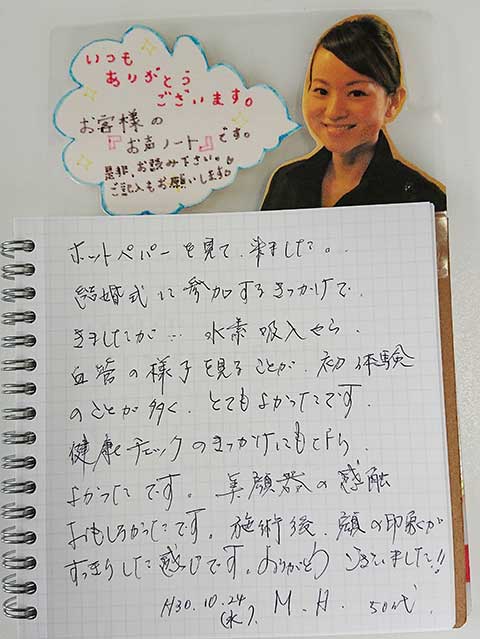 いつも
ありがとう
ございます。
お客様の
『お声ノート』です。
是非、お読み下さい。
ご記入もお願いします。
ホットペパーを見て、来ました。
結婚式に参加するきっかけで、
きましたが… 水素吸入やら、
血管の様子を見ることが、初体験
のことが多く、とてもよかったです。
健康チェックのきっかけにもなり、
よかったです。美顔器の感触
おもしろかったです。施術後、顔の印象が
すっきりした感じです。ありがとうございました!!
H30.10.24
(水), M.H. 50代.